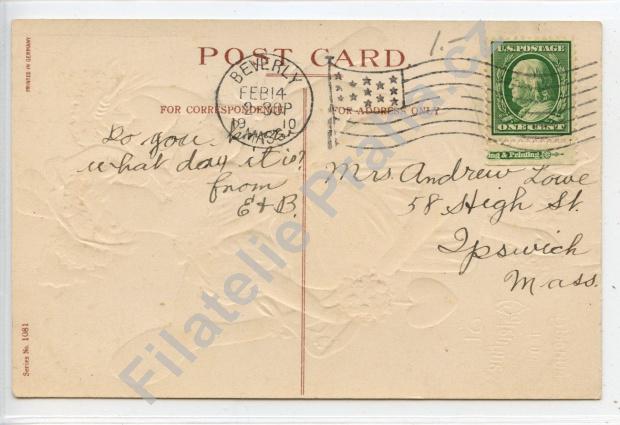 POST CARD.
PRINTED IN GERMANY
1.-
BEVERLY
FEB 14
30P
19 10
MASS.
U.S. POSTAGE
ONE CENT
ng & Printing
FOR CORRESPONDENCE
FOR ADDRESS ONLY
Do you know
what day it is?
from
E & B.
Mrs Andrew Lowe
58 High St.
Ipswich
Mass.
Series No. 1081
Filatelie Praha.cz